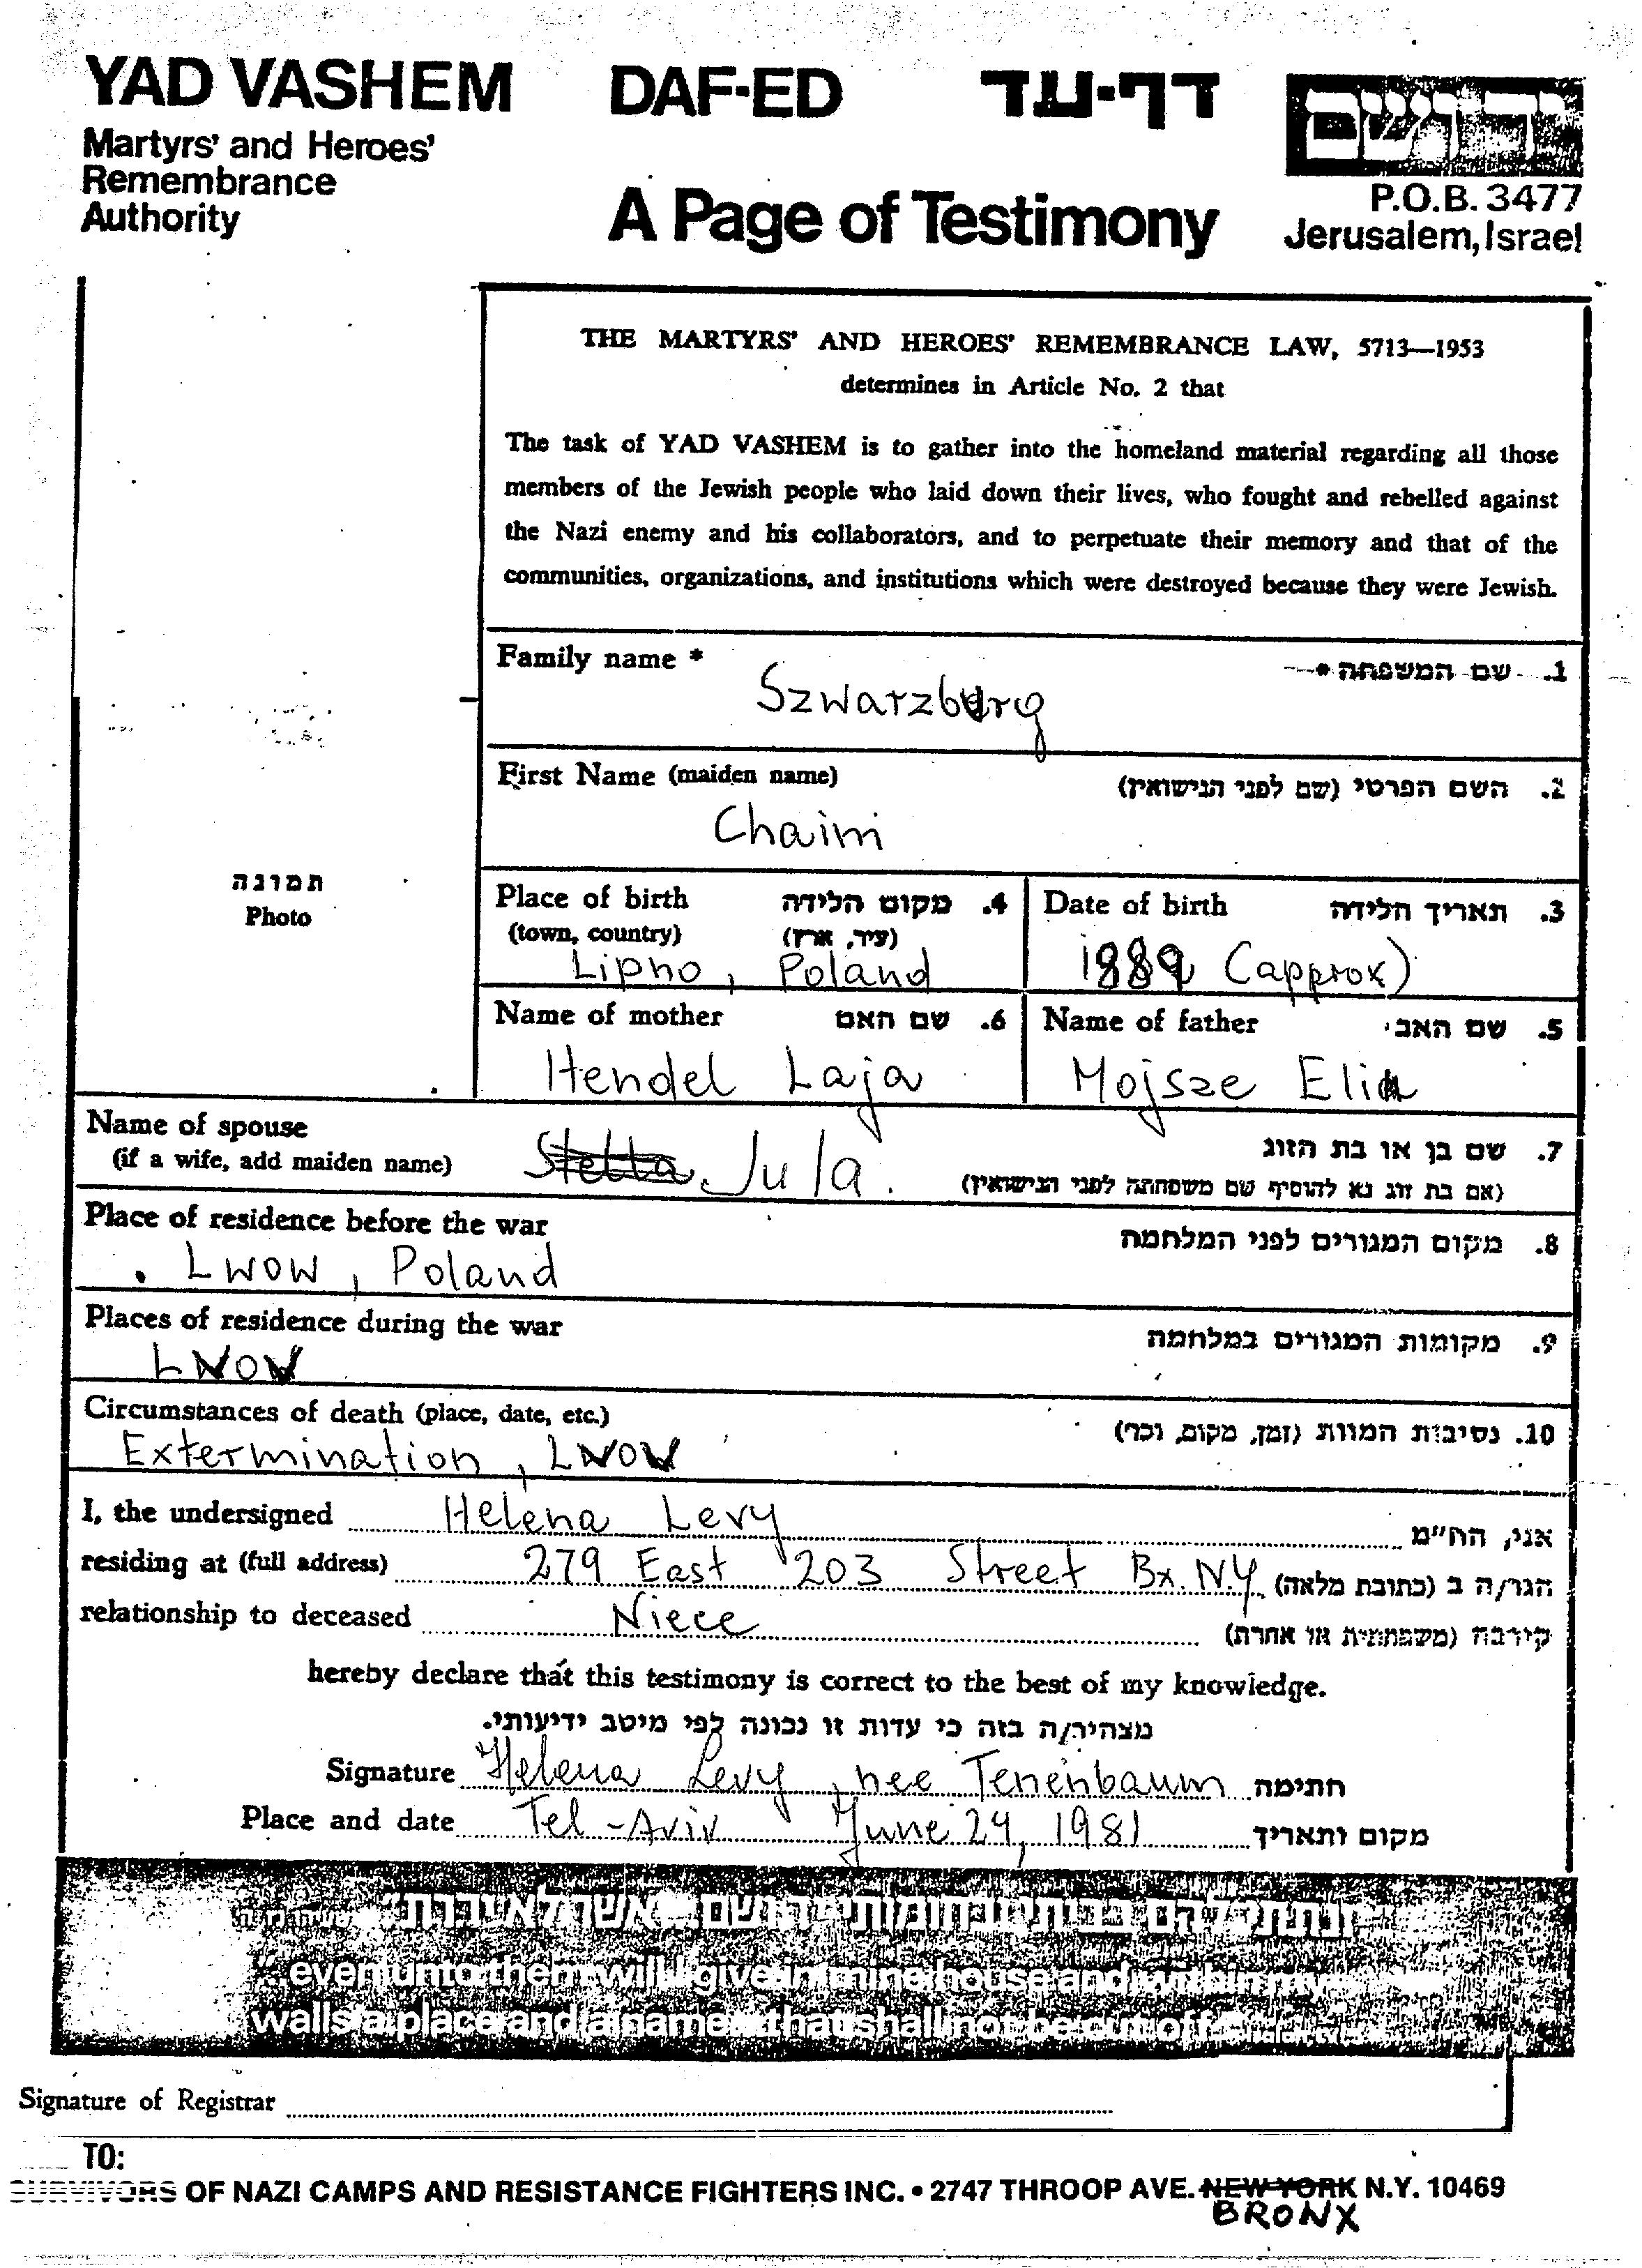 YAD VASHEM DAF-ED דף-עד
Martyrs' and Heroes'
Remembrance
Authority
A Page of Testimony
P.O.B. 3477
Jerusalem, Israel
THE MARTYRS' AND HEROES' REMEMBRANCE LAW, 5713—1953
determines in Article No. 2 that
The task of YAD VASHEM is to gather into the homeland material regarding all those
members of the Jewish people who laid down their lives, who fought and rebelled against
the Nazi enemy and his collaborators, and to perpetuate their memory and that of the
communities, organizations, and institutions which were destroyed because they were Jewish.
Family name * 1. שם המשפחה *
Szwarzberg
First Name (maiden name) 2. השם הפרטי (שם לפני הנישואין)
Chaim
תמונה
Photo
Place of birth 4. מקום הלידה
(town, country) (עיר, ארץ)
Lipno, Poland
Date of birth 3. תאריך הלידה
1889 (approx)
Name of mother 6. שם האם
Hendel Laja
Name of father 5. שם האב
Mojsze Elia
Name of spouse 7. שם בן או בת הזוג
(if a wife, add maiden name) Stella Jula. (אם בת זוג נא להוסיף שם משפחתה לפני הנישואין)
Place of residence before the war 8. מקום המגורים לפני המלחמה
Lwow, Poland
Places of residence during the war 9. מקומות המגורים במלחמה
LWOW
Circumstances of death (place, date, etc.) 10. נסיבות המוות (זמן, מקום, וכו')
Extermination, LWOW
I, the undersigned Helena Levy אני, הח"מ
residing at (full address) 279 East 203 Street Bx. N.Y. הגר/ה ב (כתובת מלאה)
relationship to deceased Niece קירבה (משפחתית או אחרת)
hereby declare that this testimony is correct to the best of my knowledge.
מצהיר/ה בזה כי עדות זו נכונה לפי מיטב ידיעותי.
Signature Helena Levy, nee Tenenbaum חתימה
Place and date Tel-Aviv June 24, 1981 מקום ותאריך
even unto them will I give in mine house and within my
walls a place and a name that shall not be cut off
Signature of Registrar
TO:
SURVIVORS OF NAZI CAMPS AND RESISTANCE FIGHTERS INC. • 2747 THROOP AVE. NEW YORK N.Y. 10469
BRONX